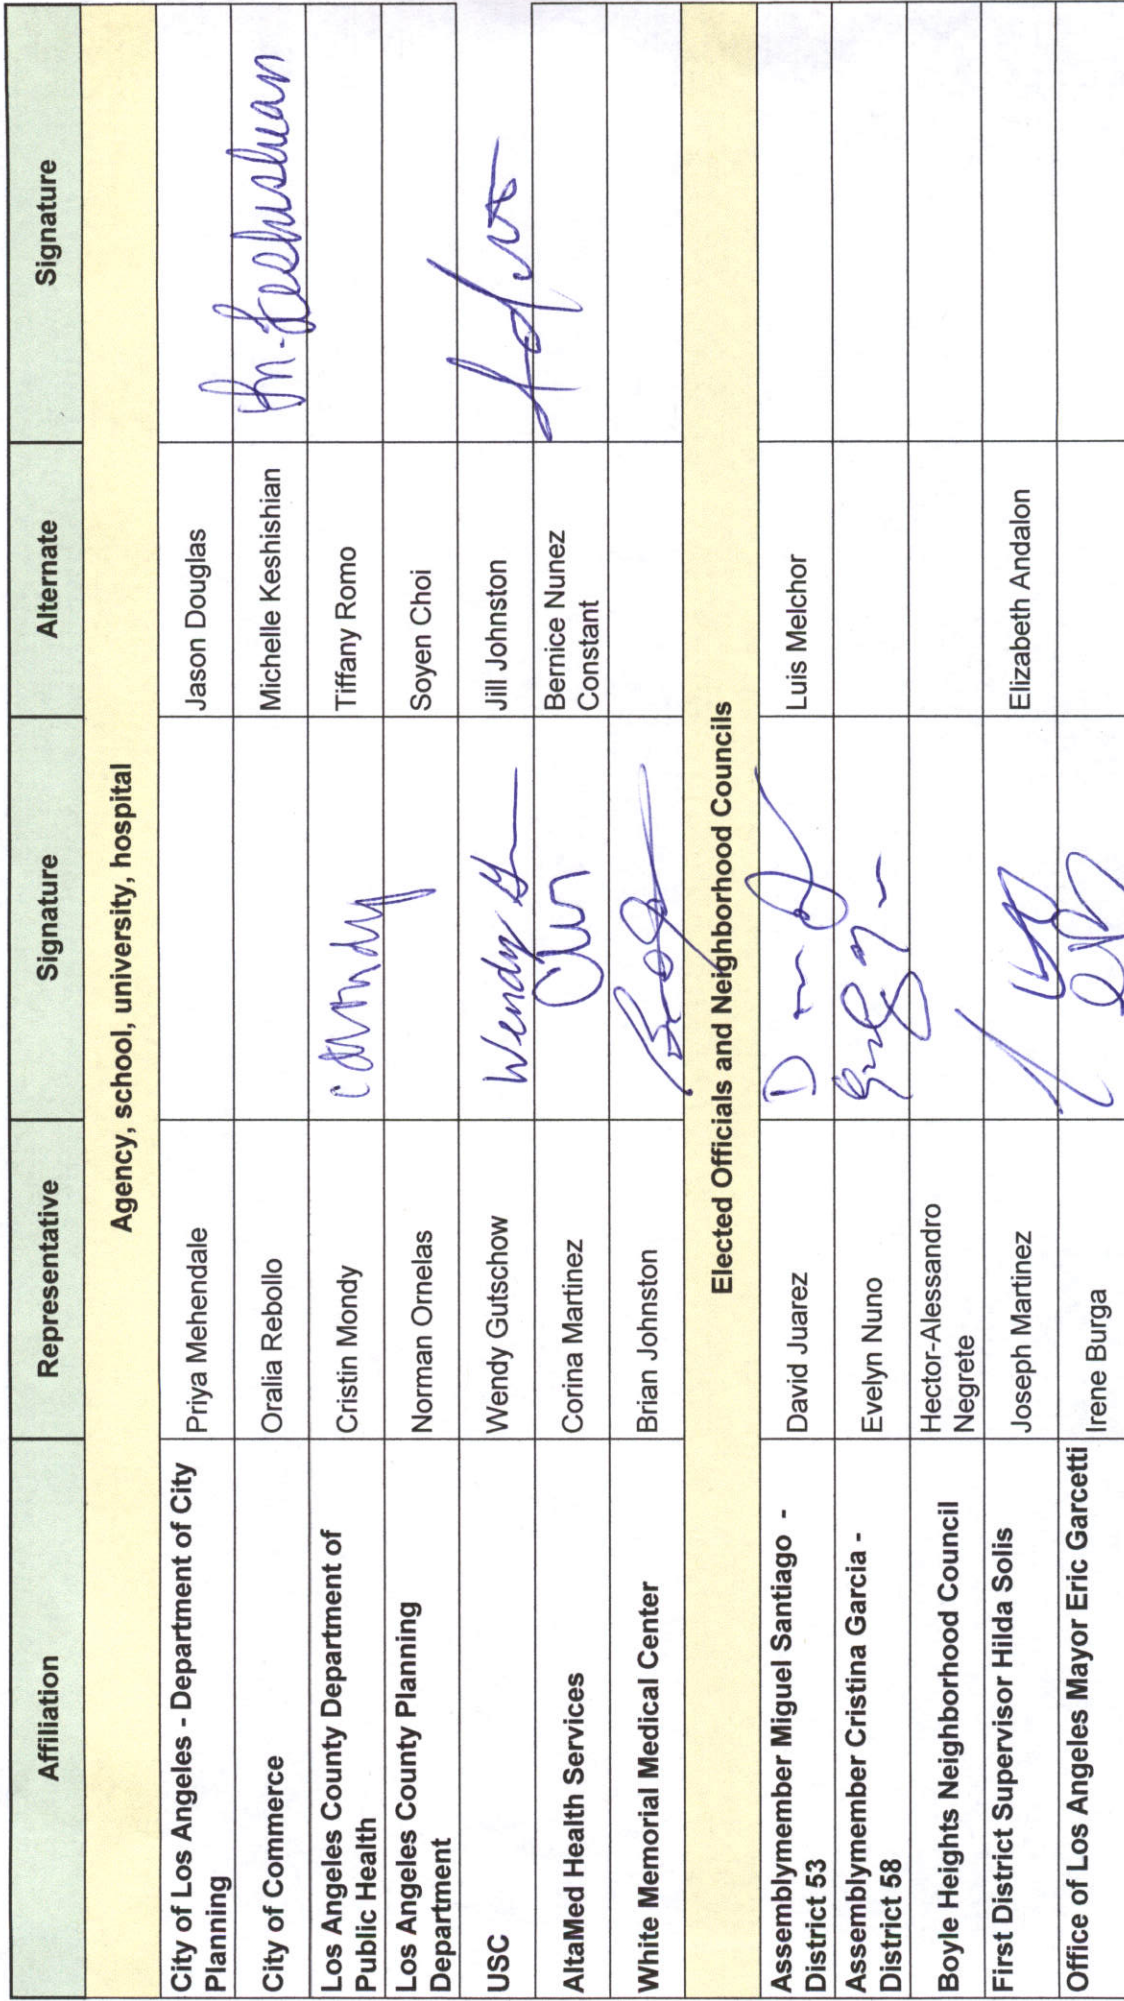 Affiliation Representative Signature Alternate Signature
Agency, school, university, hospital
City of Los Angeles - Department of City
Planning
Priya Mehendale
Jason Douglas
City of Commerce
Oralia Rebollo
Michelle Keshishian
M. Keshishian
Los Angeles County Department of
Public Health
Cristin Mondy
CMondy
Tiffany Romo
Los Angeles County Planning
Department
Norman Ornelas
Soyen Choi
USC
Wendy Gutschow
Wendy
Jill Johnston
AltaMed Health Services
Corina Martinez
Bernice Nunez
Constant
White Memorial Medical Center
Brian Johnston
Elected Officials and Neighborhood Councils
Assemblymember Miguel Santiago -
District 53
David Juarez
Luis Melchor
Assemblymember Cristina Garcia -
District 58
Evelyn Nuno
Boyle Heights Neighborhood Council
Hector-Alessandro
Negrete
First District Supervisor Hilda Solis
Joseph Martinez
Elizabeth Andalon
Office of Los Angeles Mayor Eric Garcetti
Irene Burga